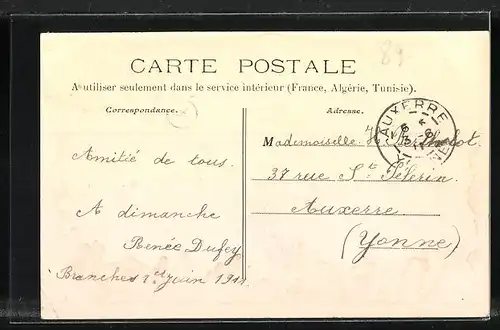 89
CARTE POSTALE
A utiliser seulement dans le service intérieur (France, Algérie, Tunisie).
Correspondance.
Adresse.
AUXERRE
Mademoiselle H. Berthelot
Amitié de tous.
37 rue St Pélerin
A dimanche
Auxerre
Renée Dufey
(Yonne)
Branches 1er juin 1911